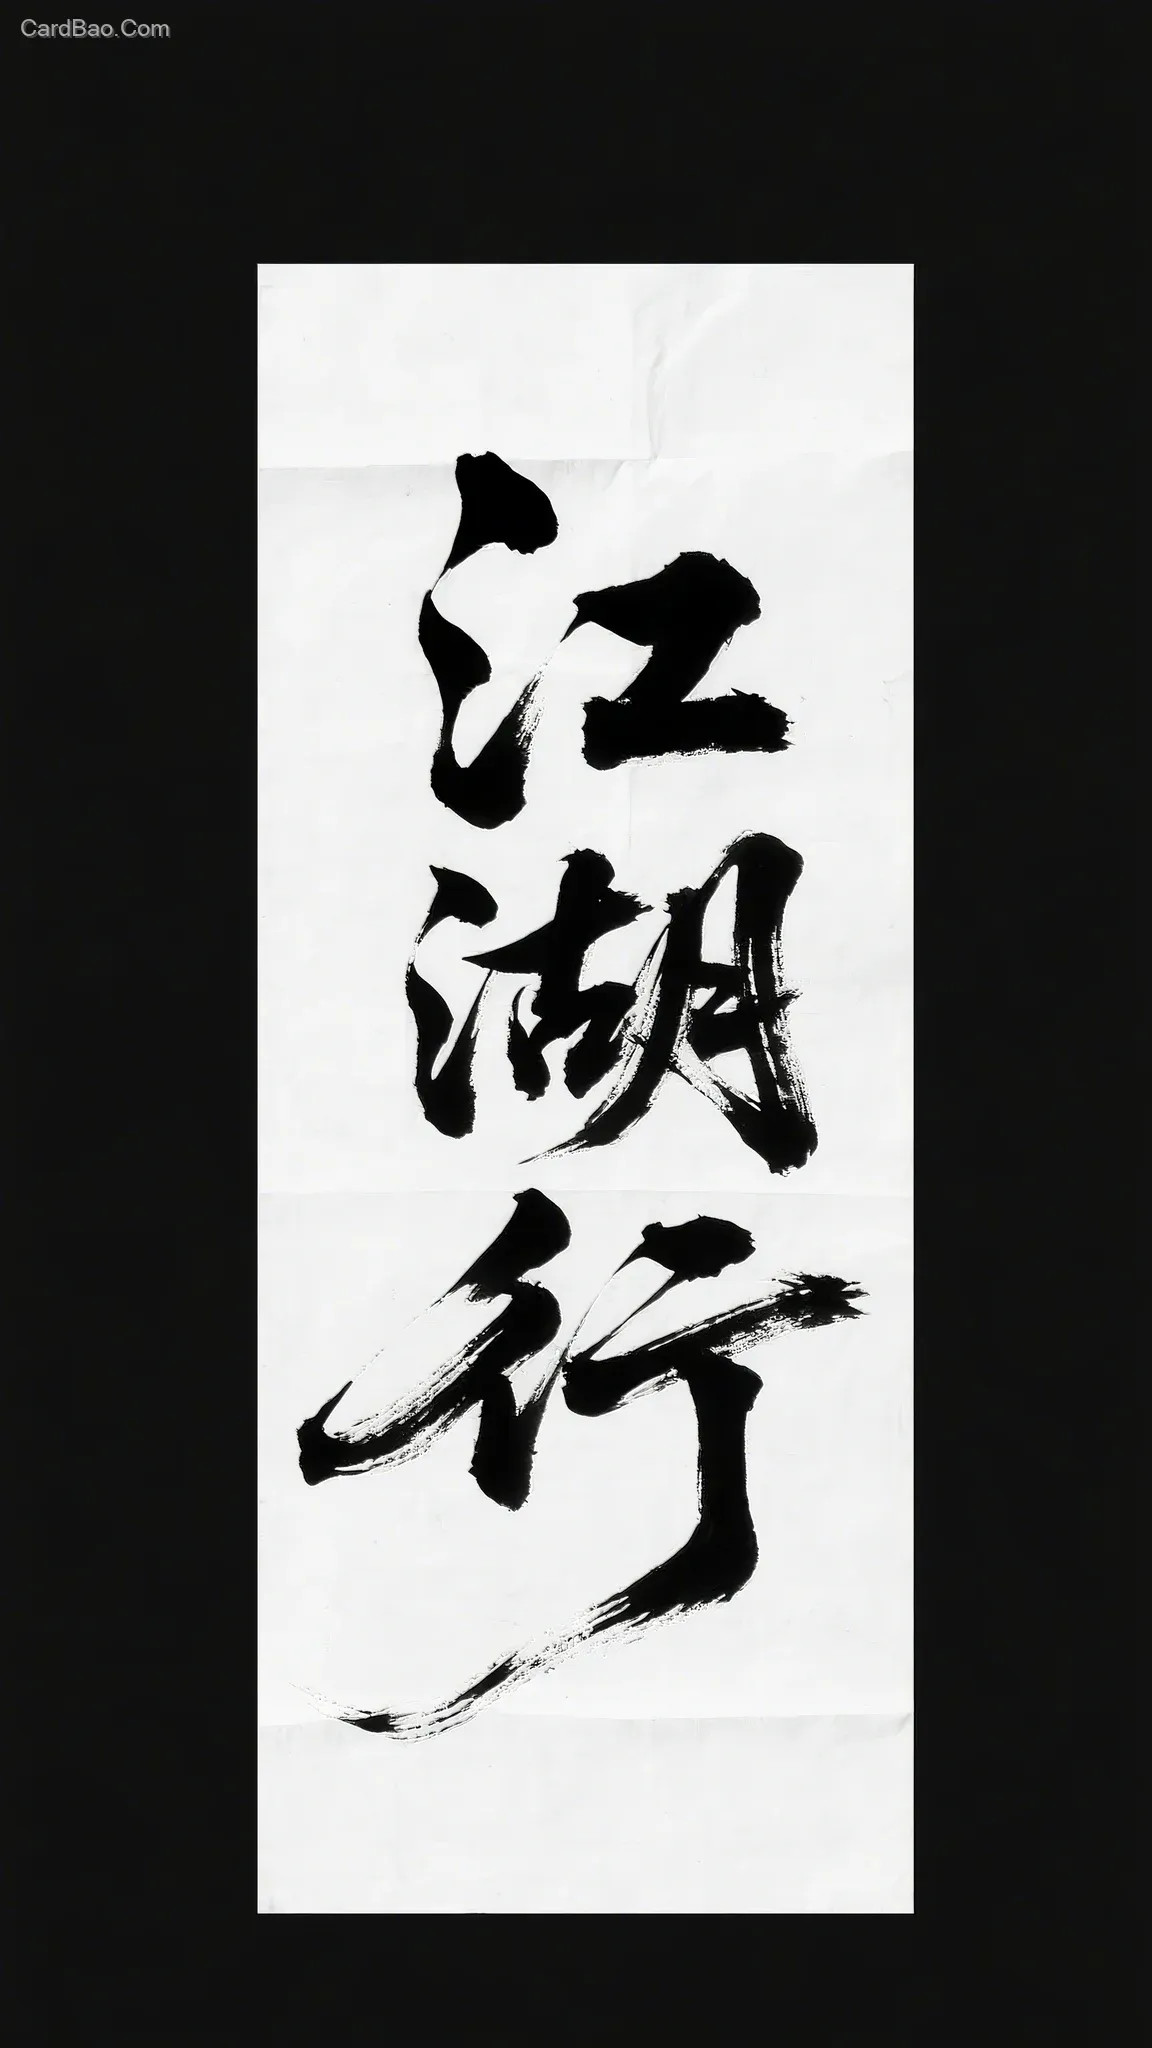 CardBao.Com
江湖行